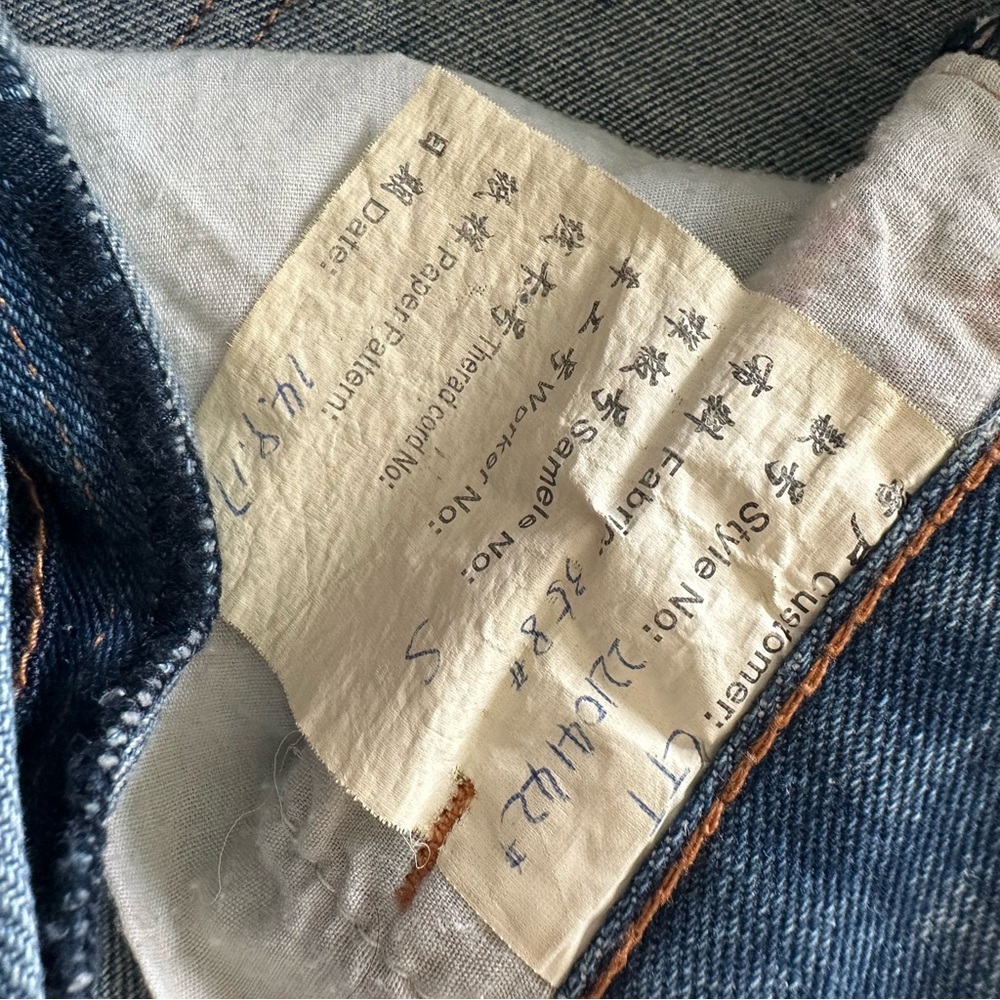 Customer: GTT
款号 Style No: 2210414L2#
布料 Fabric: 3688#
样板号 Samele No:
车工号 Worker No: S
线衣号 Therad cord No:
纸样 Paper Paltern:
日期 Date: 14.9.17